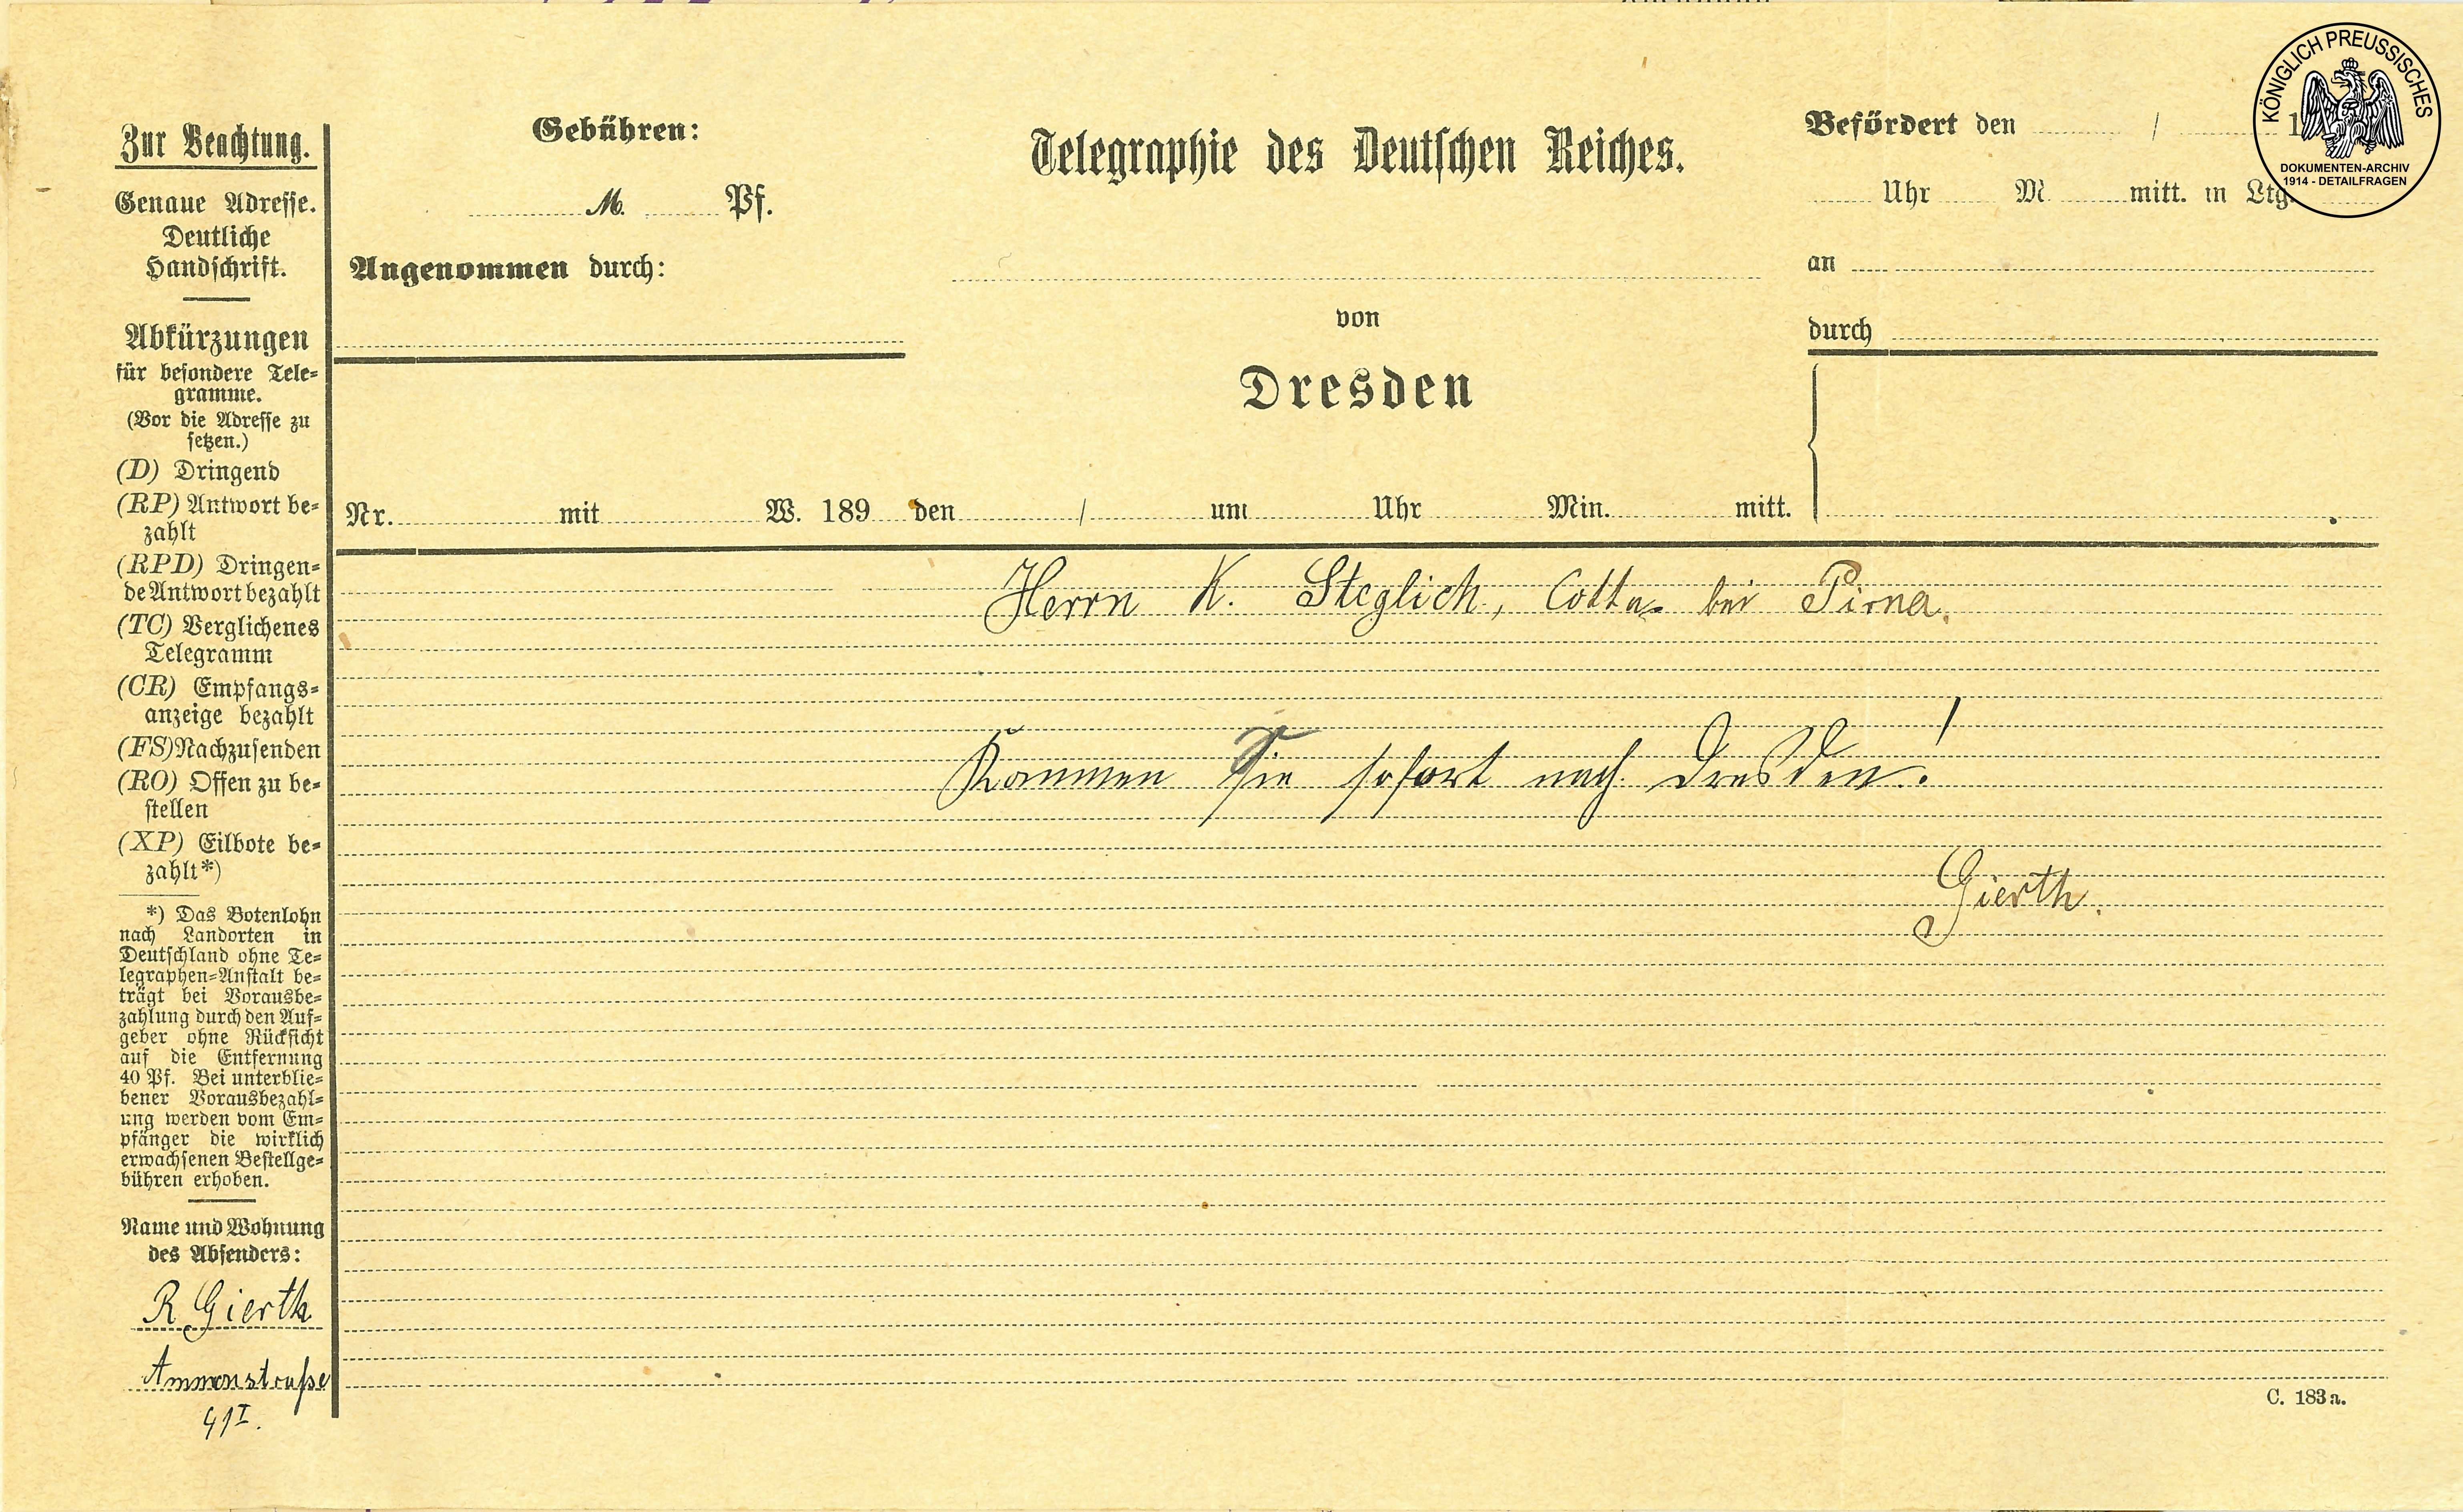 Zur Beachtung.
Genaue Adresse.
Deutliche
Handschrift.
Abkürzungen
für besondere Tele=
gramme.
(Vor die Adresse zu
setzen.)
(D) Dringend
(RP) Antwort be=
zahlt
(RPD) Dringen=
de Antwort bezahlt
(TC) Verglichenes
Telegramm
(CR) Empfangs=
anzeige bezahlt
(FS) Nachzusenden
(RO) Offen zu be=
stellen
(XP) Eilbote be=
zahlt*)
*) Das Botenlohn
nach Landorten in
Deutschland ohne Te=
legraphen=Anstalt be=
trägt bei Vorausbe=
zahlung durch den Auf=
geber ohne Rücksicht
auf die Entfernung
40 Pf. Bei unterblie=
bener Vorausbezahl=
ung werden vom Em=
pfänger die wirklich
erwachsenen Bestellge=
bühren erhoben.
Name und Wohnung
des Absenders:
R. Gierth
Ammonstraße
41 I.
Gebühren:
M. Pf.
Angenommen durch:
Telegraphie des Deutschen Reiches.
von
Dresden
Befördert den / 1
Uhr M mitt. in Ltg.
an
durch
KÖNIGLICH PREUSSISCHES
DOKUMENTEN-ARCHIV
1914 - DETAILFRAGEN
Nr. mit W. 189 den / um Uhr Min. mitt.
Herrn K. Steglich, Cotta bei Pirna.
Kommen Sie sofort nach Dresden!
Gierth.
C. 183 a.